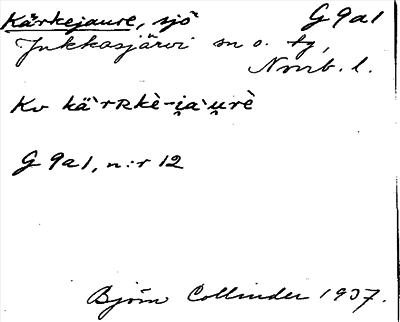 Kärkejaure, sjö G 9a1
Jukkasjärvi sn o. tg,
Nrrb. l.
Kv kä`rʀkè-i̯a`u̯rè
G 9a1, n:r 12
Björn Collinder 1937.